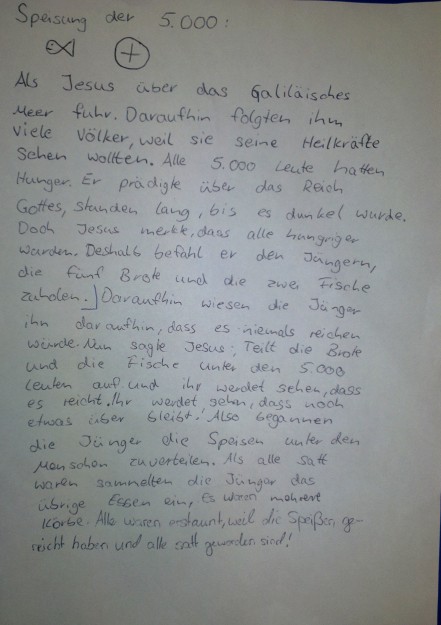 Speisung der 5.000:
Als Jesus über das Galiläisches
Meer fuhr. Daraufhin folgten ihm
viele Völker, weil sie seine Heilkräfte
sehen wollten. Alle 5.000 Leute hatten
Hunger. Er prädigte über das Reich
Gottes, stunden lang, bis es dunkel wurde.
Doch Jesus merkte, dass alle hungriger
wurden. Deshalb befahl er den Jüngern,
die fünf Brote und die zwei Fische
zuholen. Daraufhin wiesen die Jünger
ihn daraufhin, dass es niemals reichen
würde. Nun sagte Jesus: Teilt die Brote
und die Fische unter den 5.000
Leuten auf und ihr werdet sehen, dass
es reicht. Ihr werdet sehen, dass noch
etwas über bleibt! Also begannen
die Jünger die Speisen unter den
Menschen zuverteilen. Als alle satt
waren sammelten die Jünger das
übrige Essen ein, Es waren mehrere
Körbe. Alle waren erstaunt, weil die Speißen ge-
reicht haben und alle satt geworden sind!